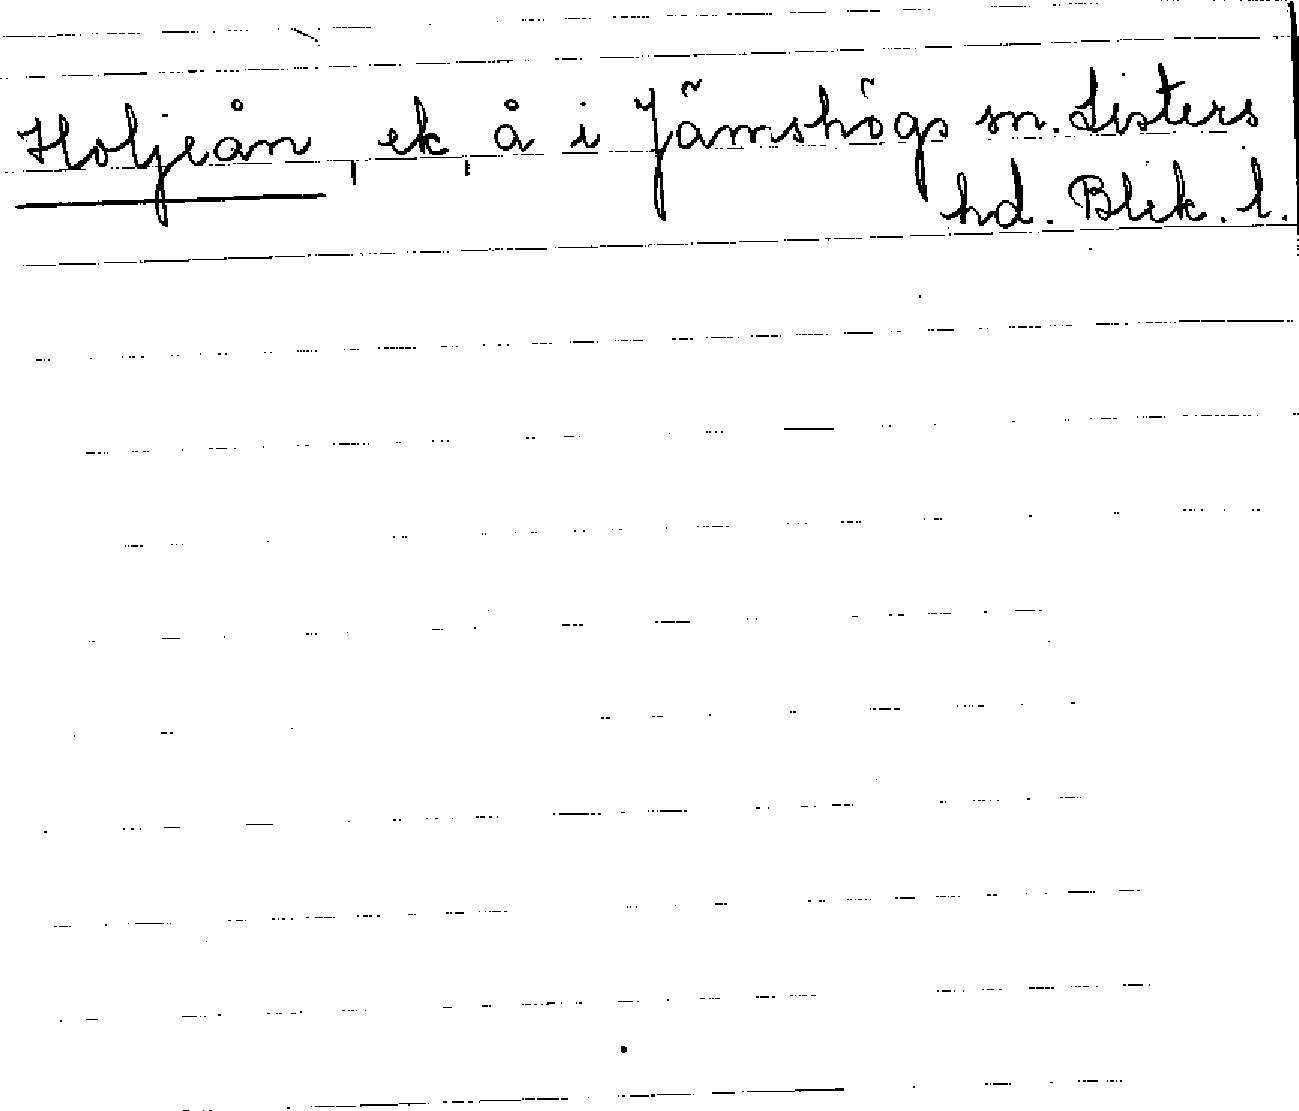 Holjeån, ek, å i Jämshögs sn. Listers
hd. Blek. l.